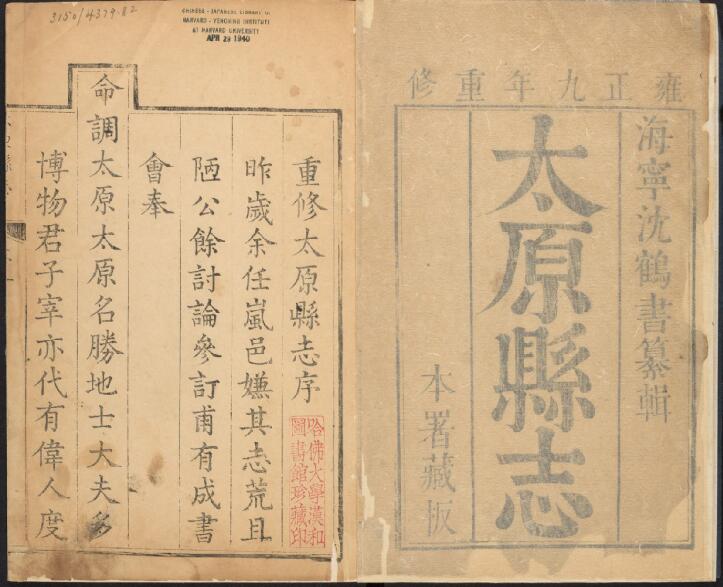 雍正九年重修
海寧沈鶴書纂輯
太原縣志
本署藏板
3150/4379.82
CHINESE - JAPANESE LIBRARY OF
HARVARD - YENCHING INSTITUTE
AT HARVARD UNIVERSITY
APR 29 1940
重修太原縣志序
昨歲余任嵐邑嫌其志荒且
陋公餘討論參訂甫有成書
會奉
命調太原太原名勝地士大夫多
博物君子宰亦代有偉人度
哈佛大學漢和
圖書館珍藏印